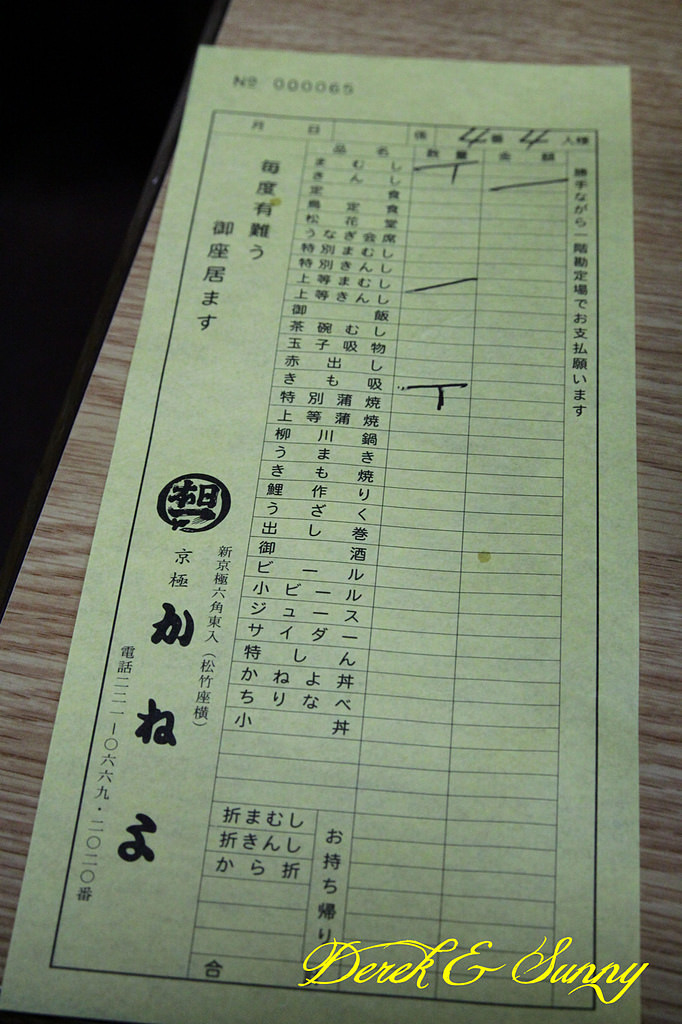 No 000065
月 日 係 4番 4人様
品名 数量 金額
まむし
きんし
定食
鳥定食
松花堂
うなぎ会席
特別まむし
特別きんし
上等まむし
上等きんし
御飯
茶碗むし
玉子吸物
赤出し
きも吸
特別蒲焼
上等蒲焼
柳川鍋
うまき
きも焼
鯉作り
うざく
出し巻
御酒
ビール
小ビール
ジュース
サイダー
特しん
かねよ丼
ちりなべ
小丼
折まむし
折きんし
から折
お持ち帰り
合
勝手ながら一階勘定場でお支払願います
毎度有難う
御座居ます
新京極六角東入(松竹座横)
京極
かねよ
電話二二一-〇六六九・二〇二〇番
Derek & Sunny